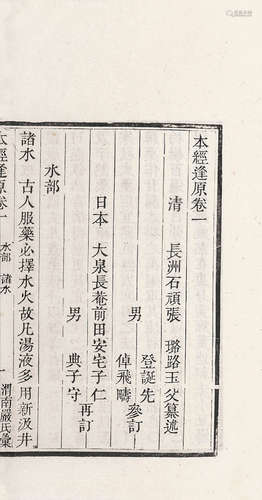 本經逢原卷一
清 長洲石頑張 璐路玉父纂述
男 登誕先
倬飛疇 參訂
日本 大泉長菴前田安宅子仁
男 典子守 再訂
水部
諸水 古人服藥必擇水火故凡湯液多用新汲井
本經逢原卷一 水部 諸水 一 渭南嚴氏彙